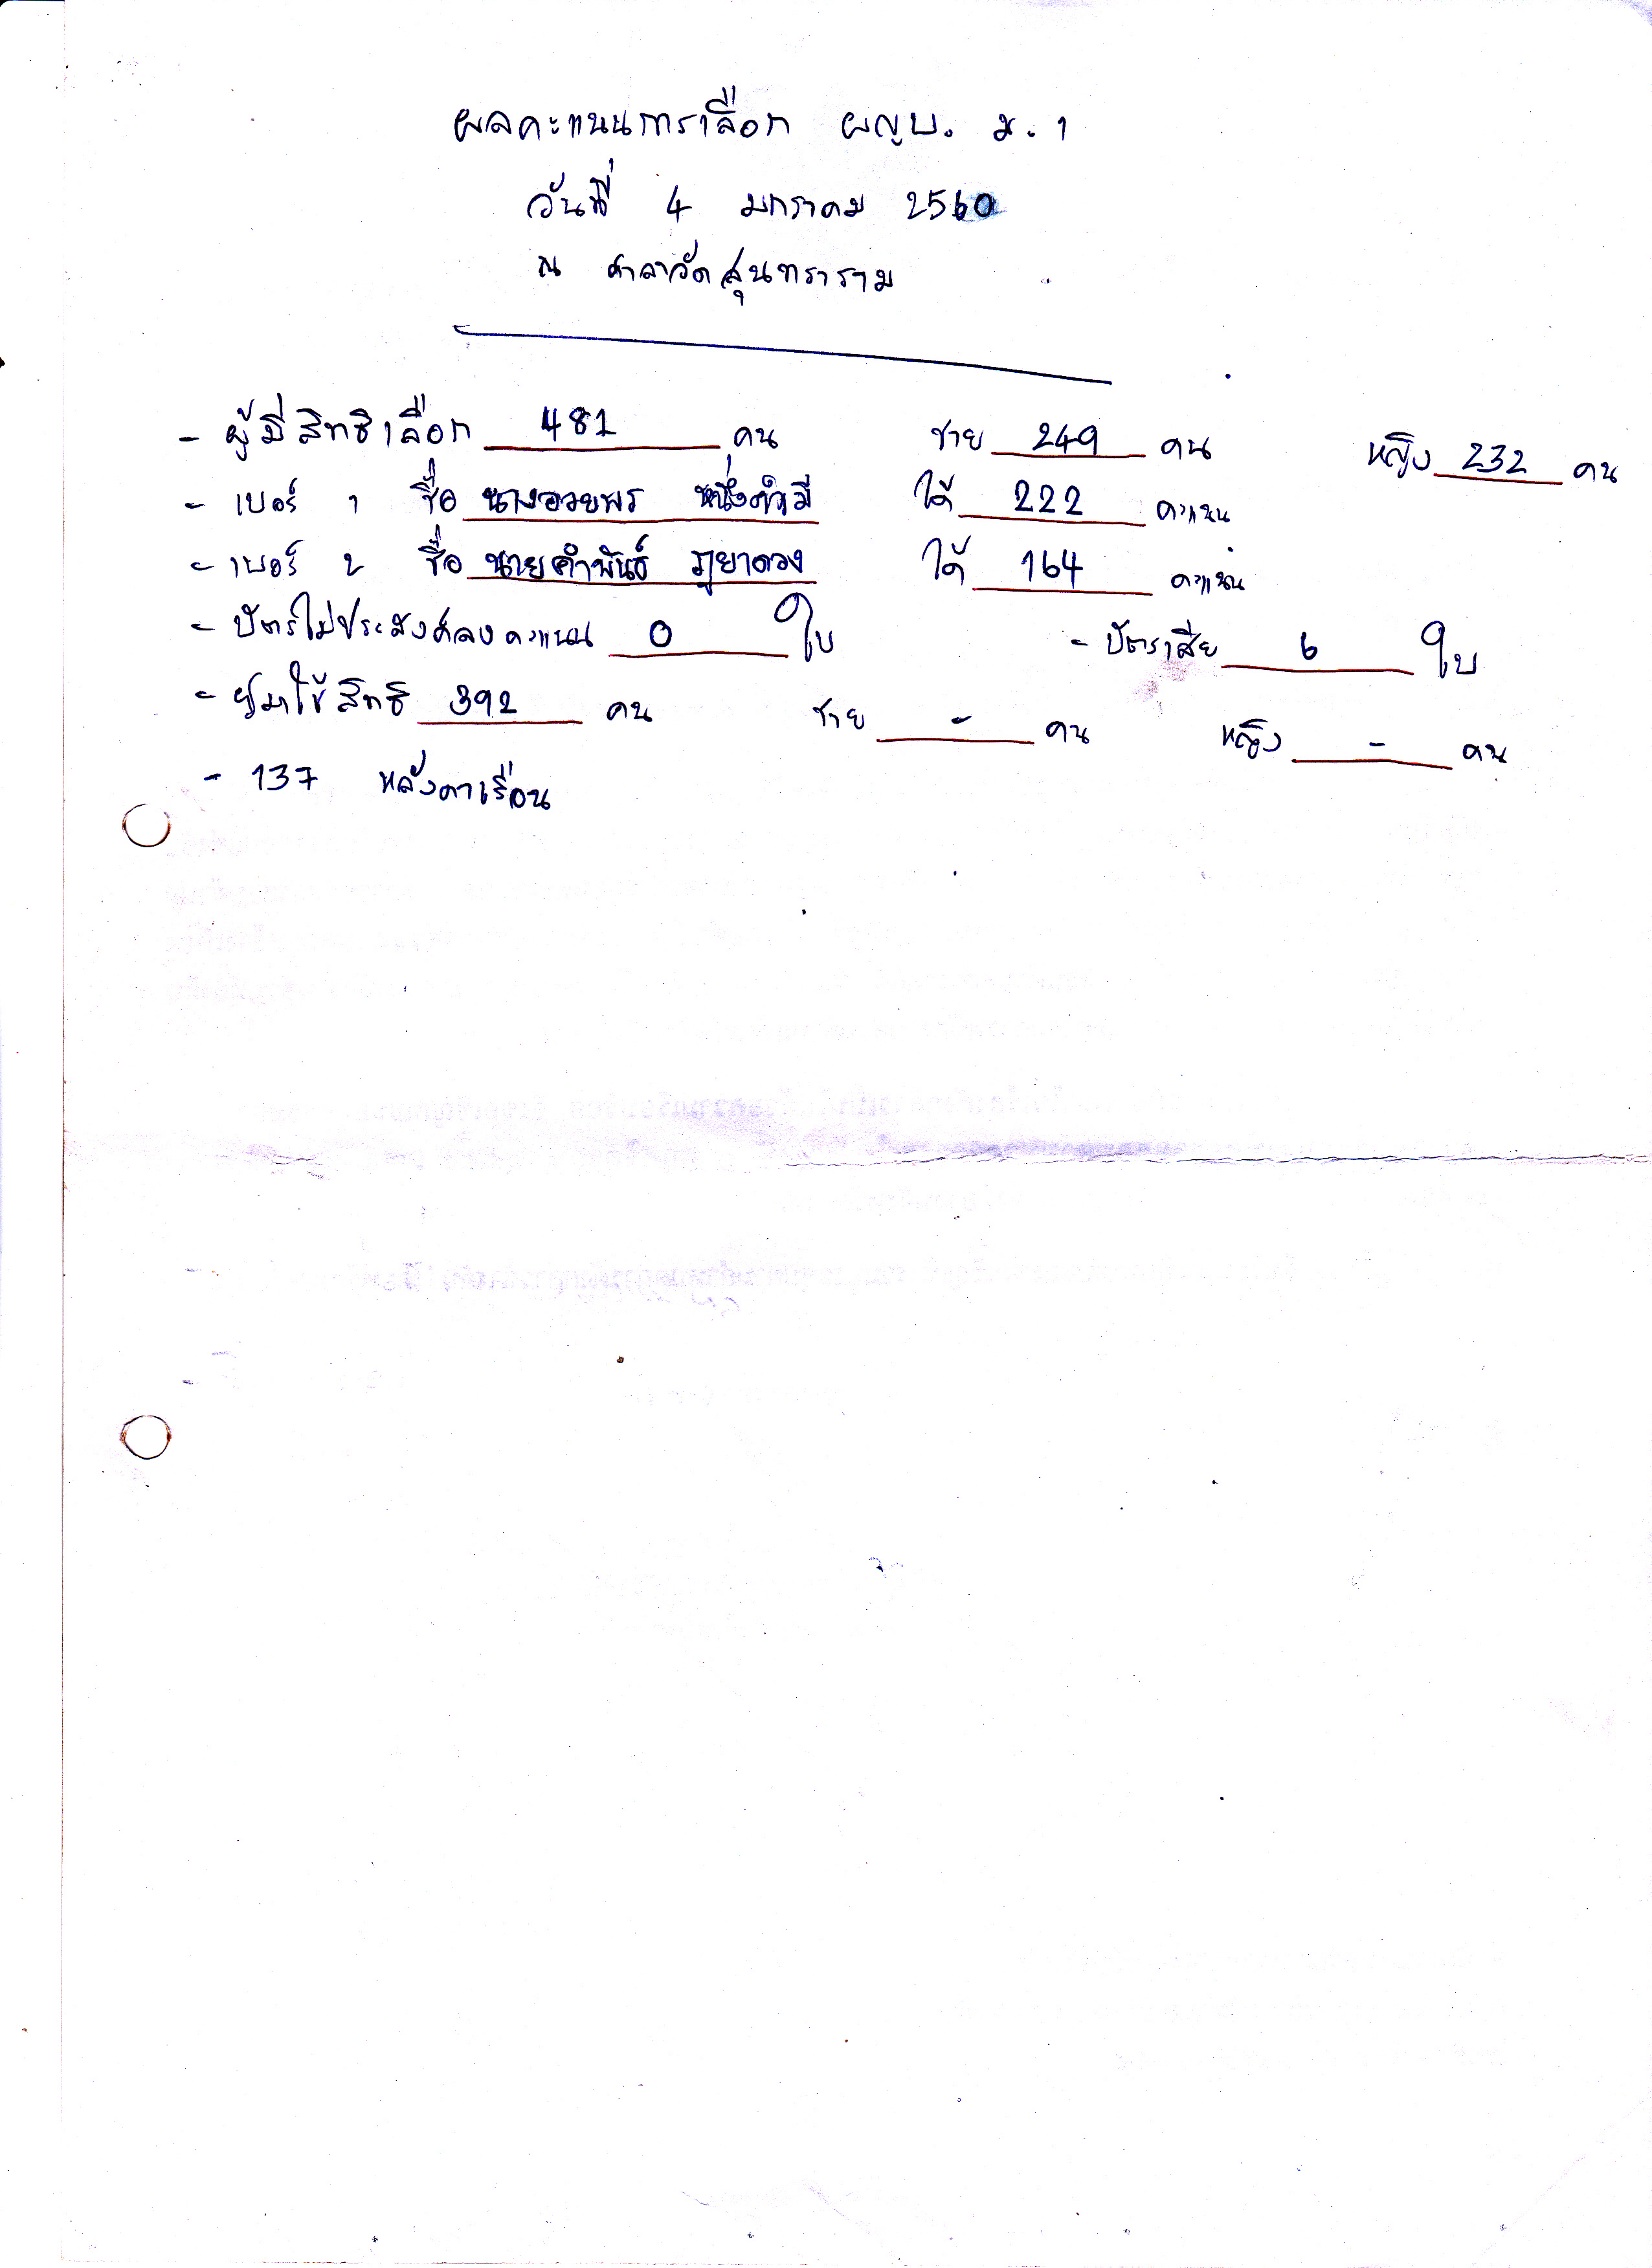 ผลคะแนนการเลือก ผญบ. ม. 1
วันที่ 4 มกราคม 2560
ณ ศาลาวัดสุนทราราม
- ผู้มีสิทธิเลือก 481 คน ชาย 249 คน หญิง 232 คน
- เบอร์ 1 ชื่อ นางอวยพร หนึ่งคำมี ได้ 222 คะแนน
- เบอร์ 2 ชื่อ นายคำพันธ์ ภูยาดวง ได้ 164 คะแนน
- บัตรไม่ประสงค์ลงคะแนน 0 ใบ - บัตรเสีย 6 ใบ
- ผู้มาใช้สิทธิ 392 คน ชาย - คน หญิง - คน
- 137 หลังคาเรือน